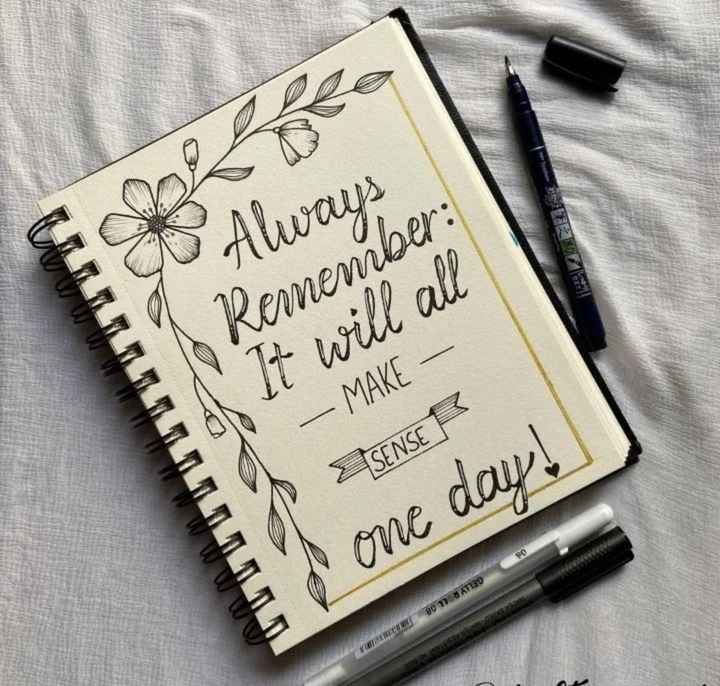 Always
Remember:
It will all
MAKE
SENSE
one day!
GELLY ROLL 08